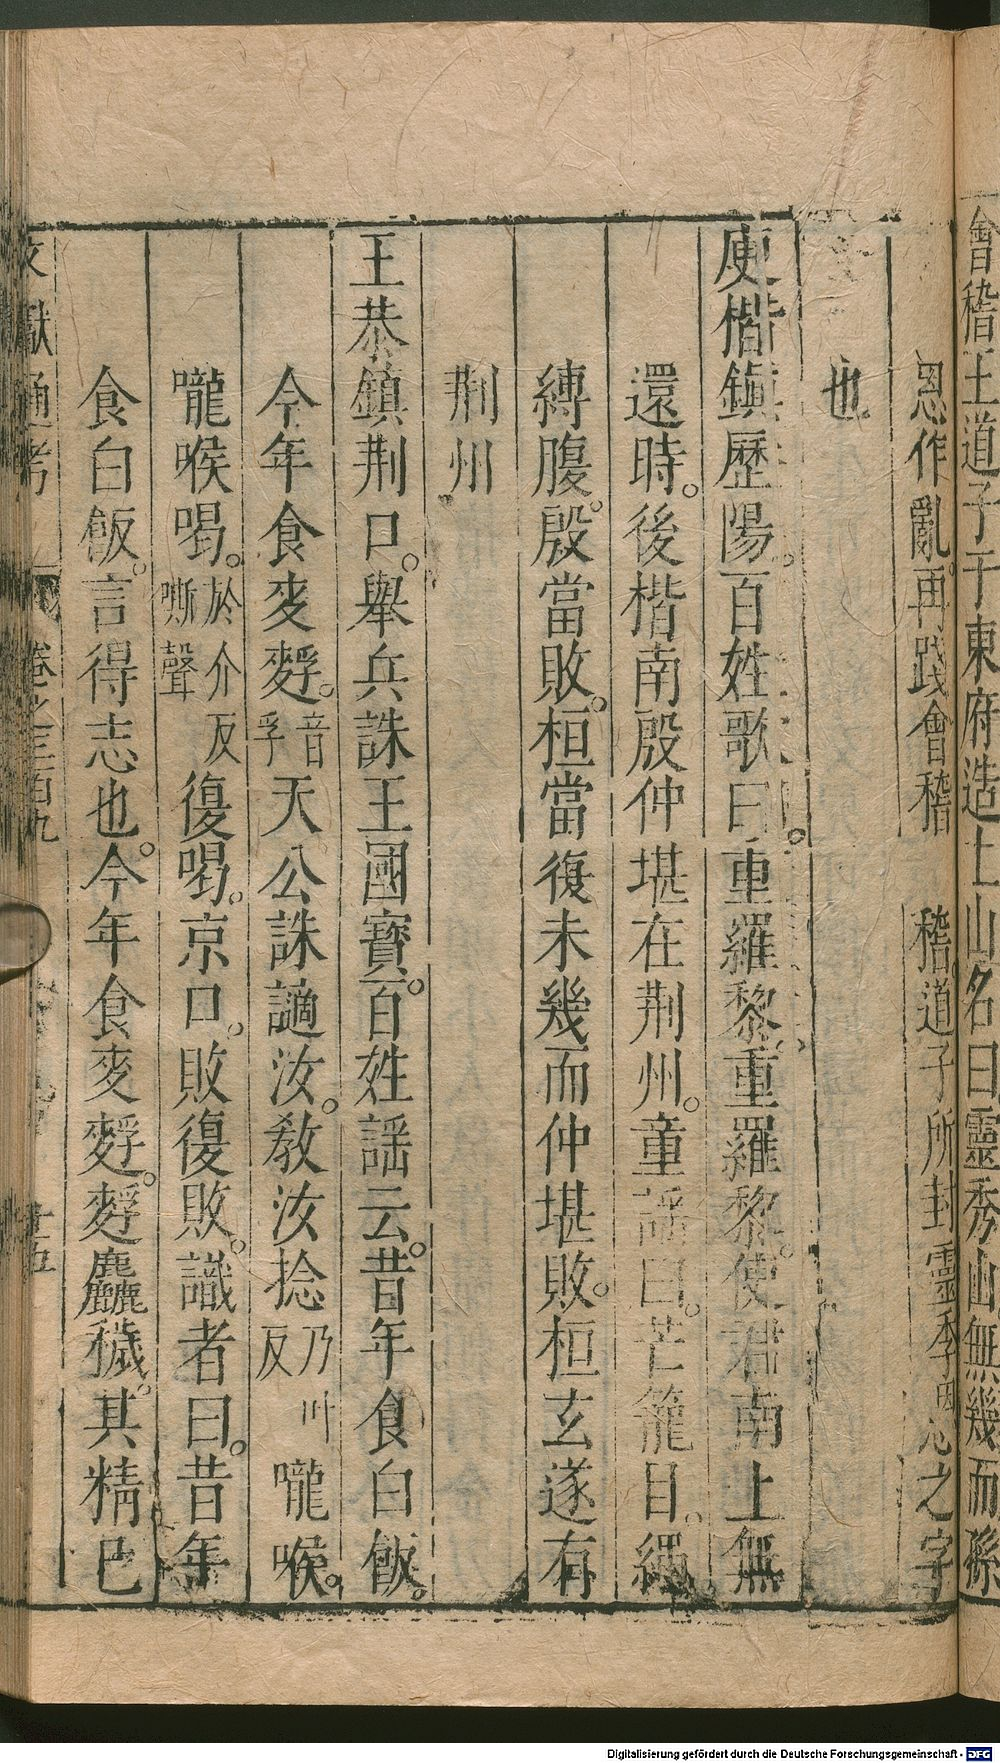 會稽王道子于東府造土山名曰靈秀山無幾而孫
恩作亂再踐會稽 稽道子所封靈季因恩之字
也
庾楷鎮歷陽百姓歌曰重羅黎重羅黎使君南上無
還時後楷南殷仲堪在荆州童謠曰芒籠目繩
縛腹殷當敗桓當復未幾而仲堪敗桓玄遂有
荆州
王恭鎮荆口舉兵誅王國寶百姓謡云昔年食白飯
今年食麥麬音孚天公誅讁汝教汝捻乃叶反嚨喉
嚨喉喝於介反嘶聲復喝京口敗復敗識者曰昔年
食白飯言得志也今年食麥麬麬麤穢其精已
文獻通考 卷之三百九 十五
Digitalisierung gefördert durch die Deutsche Forschungsgemeinschaft - DFG